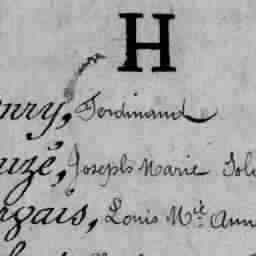 H
enry, Ferdinand
uizé, Joseph Marie
ngais, Louis M.ie Ann